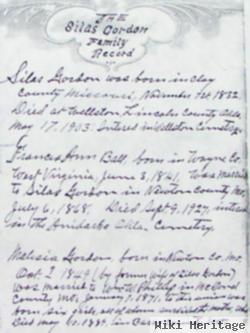 THE
Silas Gordon
Family
Record
Silas Gordon was born in Clay
County Missouri, November 1st 1832
Died at Wellston, Lincoln County Okla.
May 17, 1903. Intered in Wellston Cemetery.
Frances Ann Ball, born in Wayne Co.
West Virginia, June 3, 1841, was married
to Silas Gordon in Newton County Mo.
July 6, 1868. Died Sept. 9, 1927, interred
in the Okla. Cemetery.
Malisia Gordon born in Newton Co. Mo.
Oct. 2 1849 (by former wife of Silas Gordon)
was married to Phillip in McDonald
County Mo, January 1, 1871, to this union was
born six girls, all of whom
died May 20, 1889, in
Miki Heritage